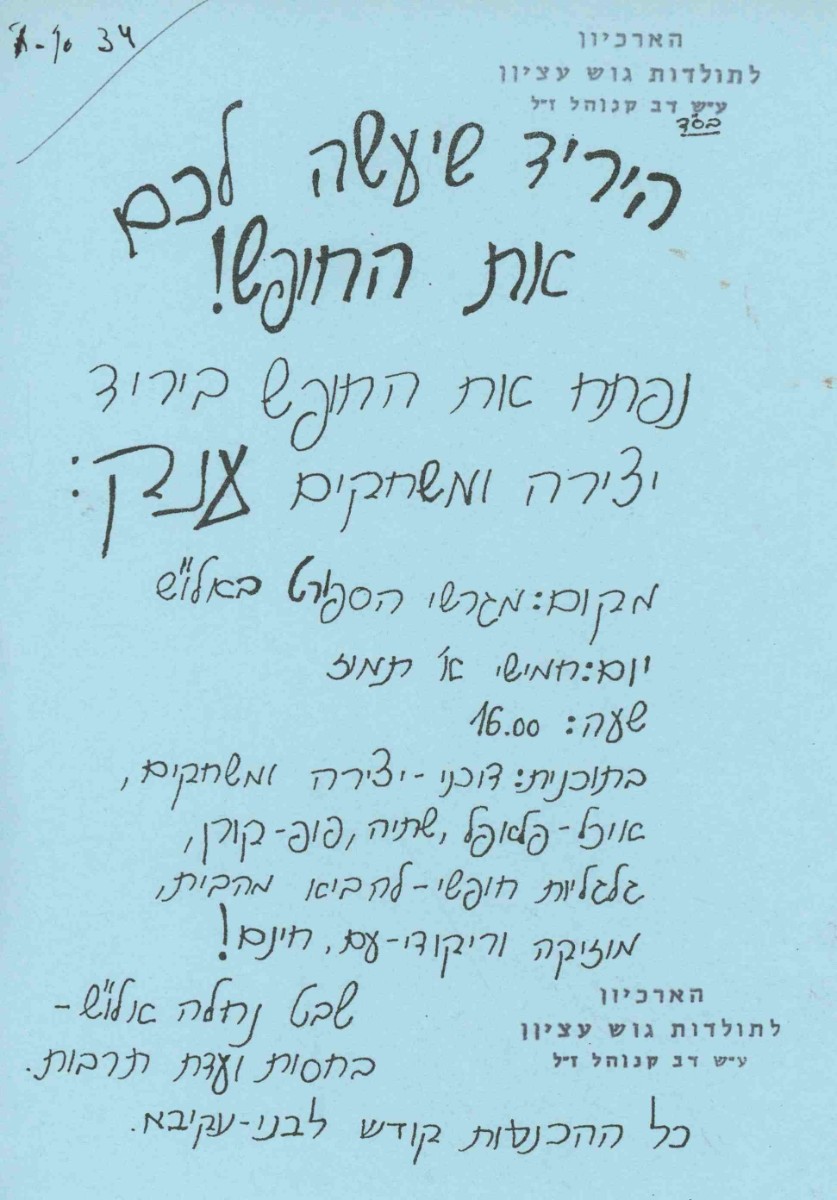 34
הארכיון
לתולדות גוש עציון
ע״ש דב קנוהל ז״ל
בס״ד
היריד שיעשה לכם
את החופש!
נפתח את החופש ביריד
יצירה ומשחקים ענק:
מקום: מגרשי הספורט באלו״ש
יום: חמישי א׳ תמוז
שעה: 16.00
בתוכנית: דוכני-יצירה ומשחקים,
אוכל-פלאפל, שתיה, פופ-קורן,
גלגליות חופשי-להביא מהבית,
מוזיקה וריקודי-עם, חינם!
שבט נחלה אלו״ש-
בחסות ועדת תרבות.
הארכיון
לתולדות גוש עציון
ע״ש דב קנוהל ז״ל
כל ההכנסות קודש לבני-עקיבא.